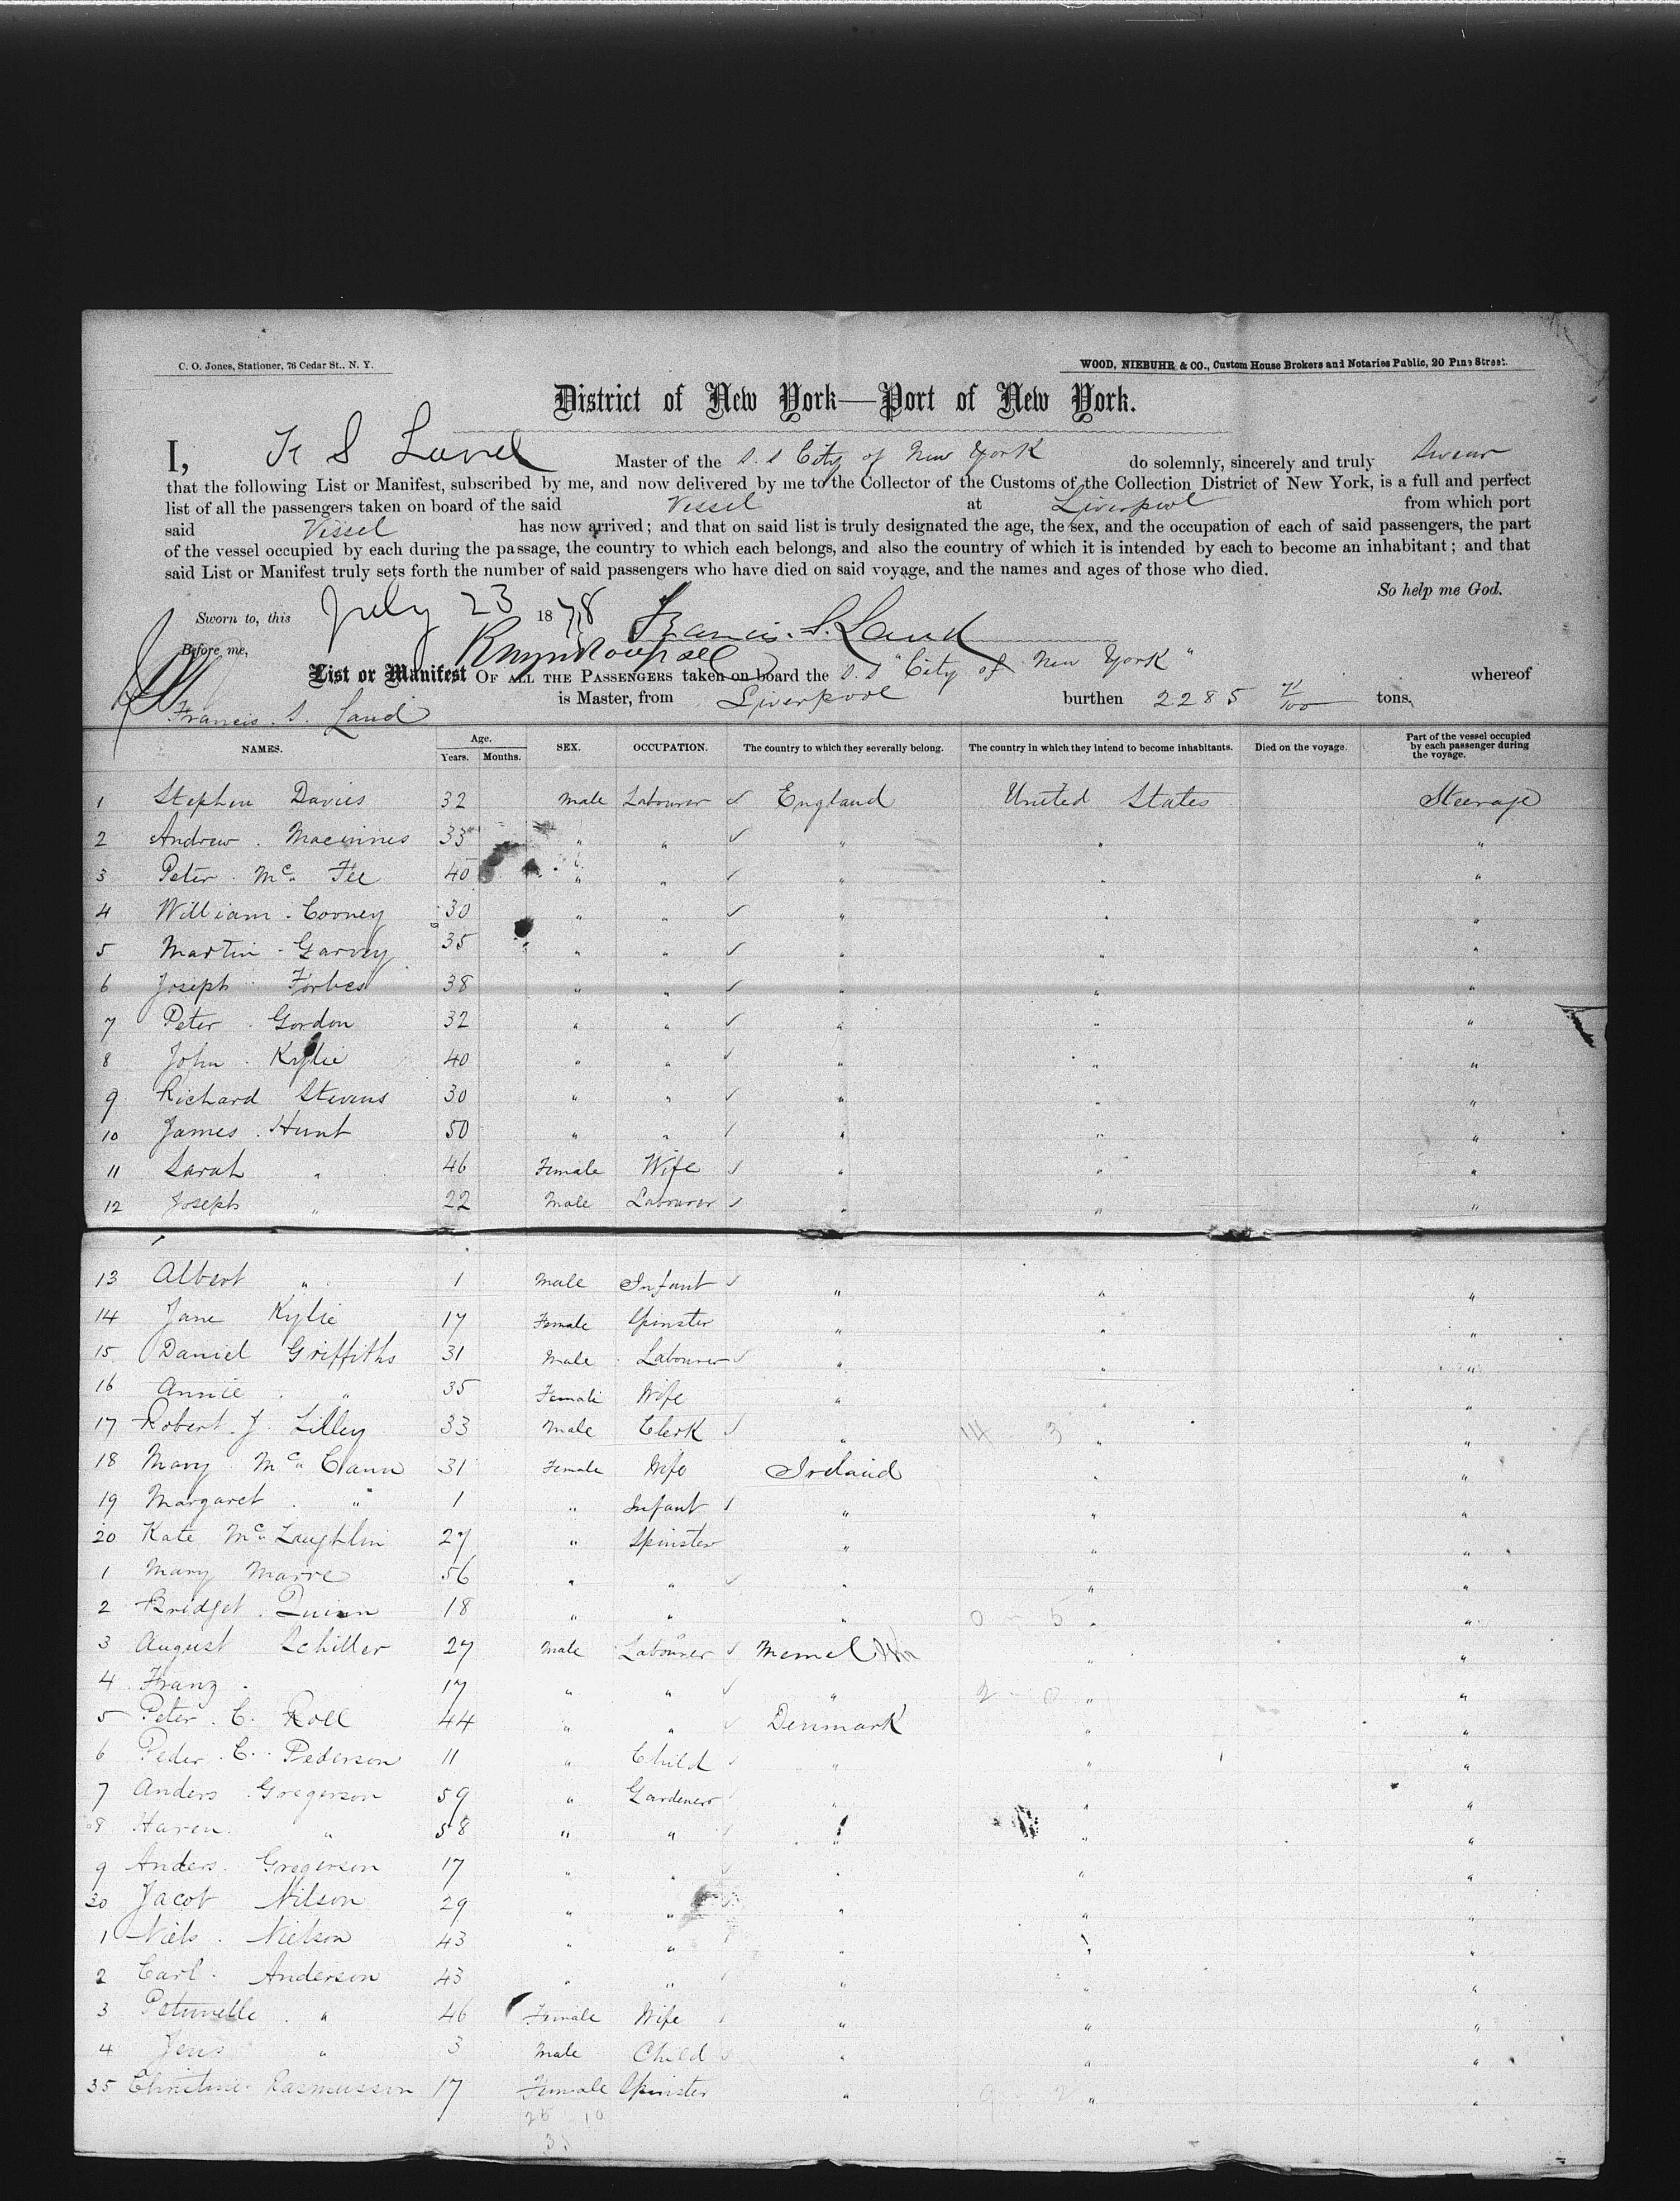 C. O. Jones, Stationer, 76 Cedar St., N. Y.
WOOD, NIEBUHR & CO., Custom House Brokers and Notaries Public, 20 Pine Street.
District of New York—Port of New York.
I, F S Land Master of the S. S City of New York do solemnly, sincerely and truly Swear
that the following List or Manifest, subscribed by me, and now delivered by me to the Collector of the Customs of the Collection District of New York, is a full and perfect
list of all the passengers taken on board of the said Vessel at Liverpool from which port
said Vessel has now arrived; and that on said list is truly designated the age, the sex, and the occupation of each of said passengers, the part
of the vessel occupied by each during the passage, the country to which each belongs, and also the country of which it is intended by each to become an inhabitant; and that
said List or Manifest truly sets forth the number of said passengers who have died on said voyage, and the names and ages of those who died.
So help me God.
Sworn to, this July 23 1878 Francis. S. Land
Before me,
List or Manifest OF ALL THE PASSENGERS taken on board the S. S "City of New York" whereof
Francis. S. Land is Master, from Liverpool burthen 2285 /100 tons.
NAMES. Age. Years. Months. SEX. OCCUPATION. The country to which they severally belong. The country in which they intend to become inhabitants. Died on the voyage. Part of the vessel occupied by each passenger during the voyage.
1 Stephen Davies 32 Male Labourer ✓ England United States Steerage
2 Andrew. Macinnes 33 " " ✓ " " "
3 Peter. Mc. Fee 40 " " ✓ " " "
4 William. Cooney 30 " " ✓ " " "
5 Martin - Garvey 35 " " ✓ " " "
6 Joseph Forbes 38 " " ✓ " " "
7 Peter. Gordon 32 " " ✓ " " "
8 John. Kylie 40 " " ✓ " " "
9 Richard Stevens 30 " " ✓ " " "
10 James. Hunt 50 " " ✓ " " "
11 Sarah " 46 Female Wife ✓ " " "
12 Joseph " 22 Male Labourer ✓ " " "
13 Albert " 1 Male Infant ✓ " " "
14 Jane Kylie 17 Female Spinster " " "
15 Daniel Griffiths 31 Male Labourer ✓ " " "
16 Annie. " 35 Female Wife " " "
17 Robert. J. Lilley 33 Male Clerk ✓ " 14 3 " "
18 Mary Mc. Cann 31 Female Wife Ireland " "
19 Margaret. " 1 " Infant ✓ " " "
20 Kate Mc. Laughlin 27 " Spinster " " "
1 Mary Marre 56 " " ✓ " " "
2 Bridget. Quinn 18 " " " 0 - 5 " "
3 August Schiller 27 Male Labourer ✓ Memel " "
4 Franz. 17 " " ✓ " 2 - 0 " "
5 Peter. C. Roll 44 " " ✓ Denmark " "
6 Peder. C. Pederson 11 " Child ✓ " " "
7 Anders. Gregerson 59 " Gardener ✓ " " "
8 Haren. " 58 " " ✓ " " "
9 Anders. Gregersen 17 " " ✓ " " "
30 Jacob Nilson 29 " " ✓ " " "
1 Niels. Nielson 43 " " " " "
2 Carl. Anderson 43 " " " " "
3 Petrunelle. " 46 Female Wife " " "
4 Jens " 3 Male Child ✓ " " "
35 Christine Rasmussen 17 Female Spinster " 9 2 " "
25 10
35